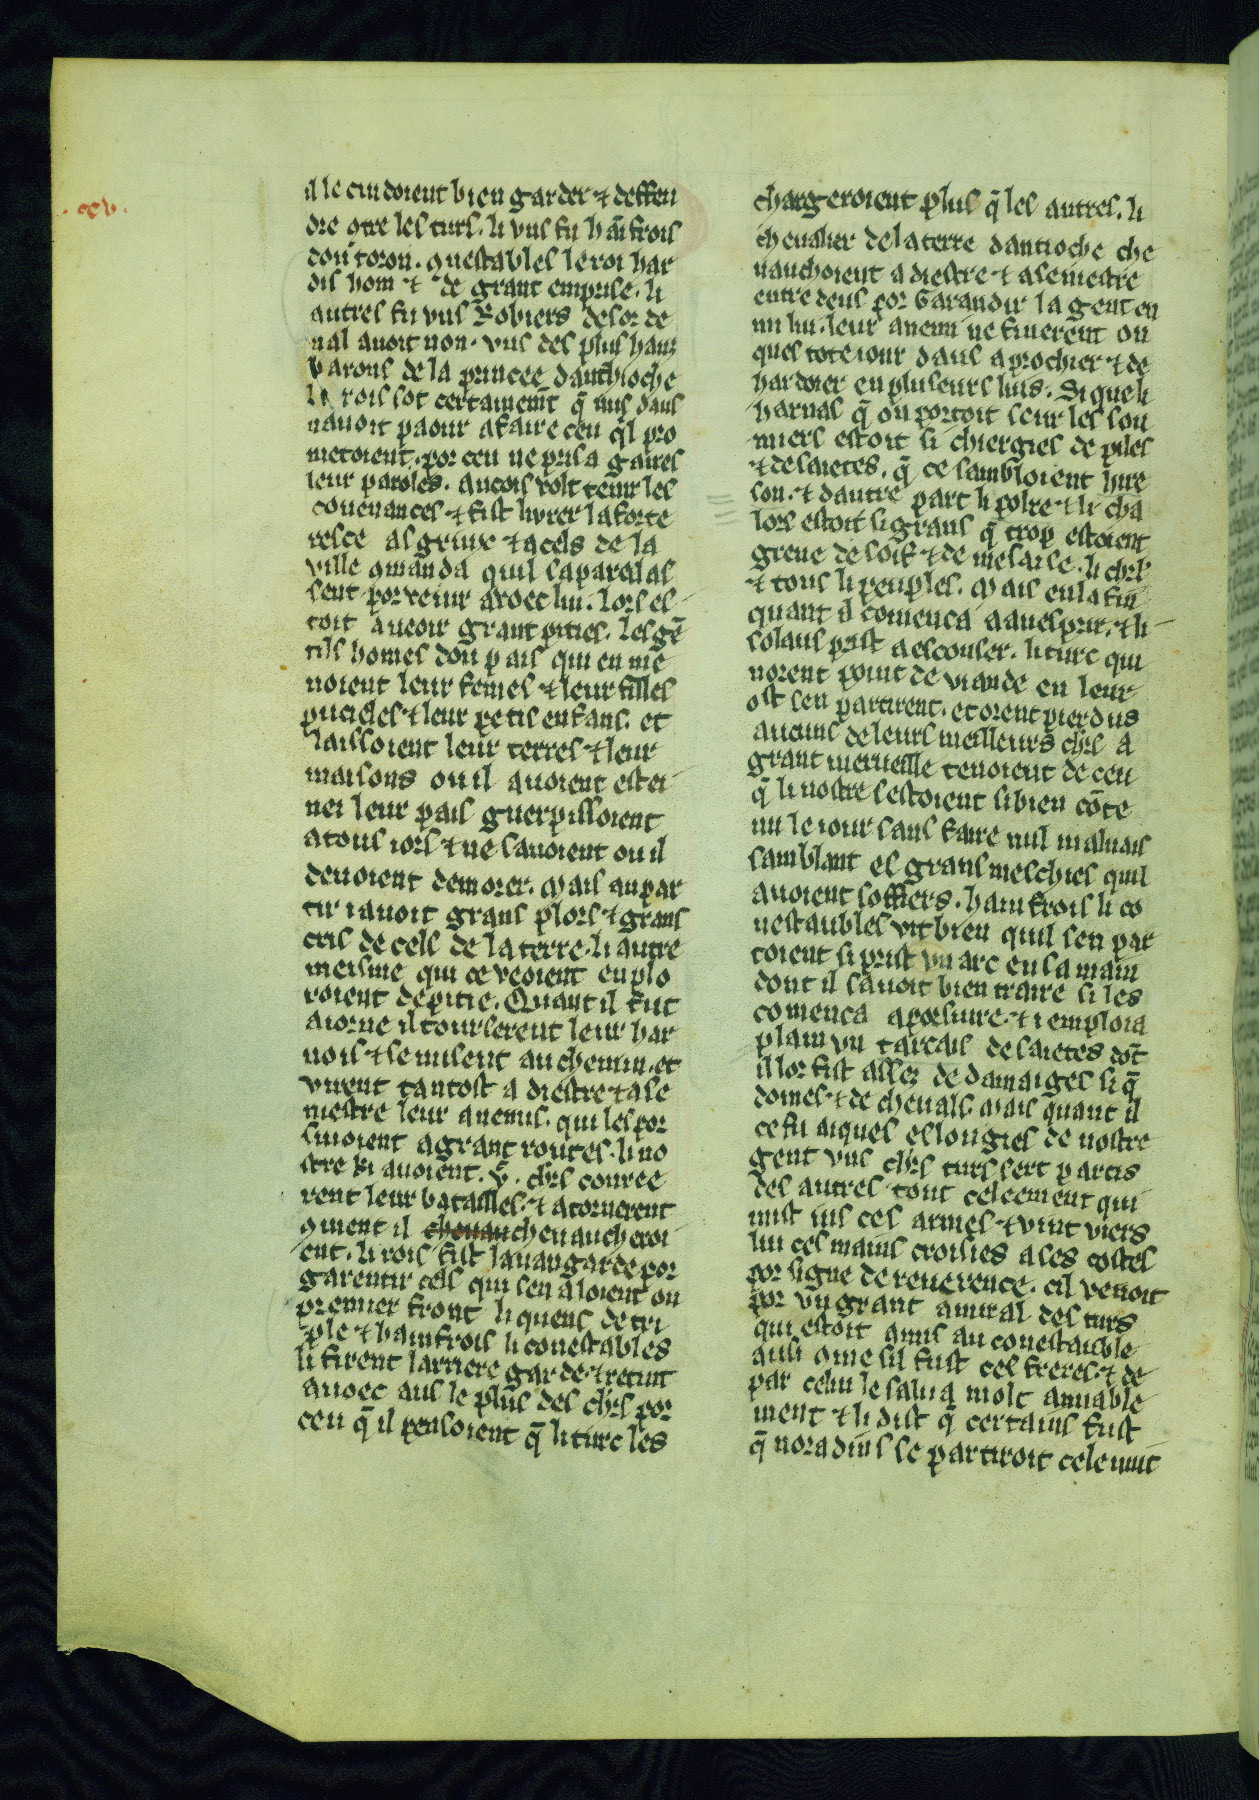 .ccv.
il le cuidoient bien garder ⁊ deffen
dre ɔtre les turs. li vns fu hāifrois
dou toron. ɔnestables le roi har
dis hom ⁊ de grant emprise. li
autres fu vns Robiers de sorde
ual auoit non. vns des plus haus
barons de la princee danthioche
li rois sot certainemt q̄ nus daus
nauoit paour a faire ceu q̄l pro
metoient. por ceu ne prisa gaires
leur paroles. ancois volt tenir les
couenances ⁊ fist livrer la forte
resce as grius ⁊ a cels de la
ville ɔmanda quil saparelas
sent por venir avoec lui. lors es
toit a ueoir grant pities. les gē
tils homes dou pais qui en me
noient leur femes ⁊ leur filles
puceles ⁊ leur petis enfans. et
laissoient leur terres ⁊ leur
maisons ou il auoient estei
nei leur pais guerpissoient
a tous iors ⁊ ne sauoient ou il
deuoient demorer. mais au par
tir i auoit grans plors ⁊ grans
cris de cels de la terre. li autre
meisme qui ce veoient en plo
roient de pitie. Quant il fut
aiorne il tourserent leur har
nois ⁊ se misent au chemin. et
virent tantost a diestre ⁊ a se
nestre leur anemis. qui les por
siuoient a grant routes. li no
stre ki auoient .v̄. chrs couree
rent leur batailles. ⁊ atornerent
ɔment il cheuau cheuaucheroi
ent. li rois fist lauangarde por
garentir cels qui sen aloient ou
premier front li quens de tri
ple ⁊ hainfrois li conestables
li firent larriere garde. ⁊ retint
auoec aus le plus des chrs por
ceu q̄ il pensoient q̄ li turc les
chargeroient plus q̄ les autres. li
cheualier de la terre dantioche che
uauchoient a diestre ⁊ a senestre
entre deus por Garandir la gent en
mi liu. leur anemi ne finerent on
ques tote iour daus aprochier ⁊ de
hardoier en pluseurs lius. Si que li
harnas q̄ on portoit seur les sou
miers estoit si chiergies de piles
⁊ de saietes. q̄ ce sambloient hire
son. ⁊ dautre part li polre ⁊ li cha
lors estoit si grans q̄ trop estoient
greue de soif ⁊ de mesaise. li chrs
⁊ tous li peuples. mais en la fin
quant il comenca a auesprir. ⁊ li
solaus prist a esconser. li turc qui
norent point de viande en leur
ost sen partirent. et orent pierdus
aucuns de leurs meilleurs chrs a
grant merueille tenoient de ceu
q̄ li nostre sestoient si bien cōte
nu le iour sans faire nul malvais
samblant es grans meschies quil
auoient soffiers. hainfrois li co
nestaubles vit bien quil sen par
toient si prist vn arc en sa main
dont il sauoit bien traire si les
comenca a poesiure. ⁊ i emploia
plain vn tarcais de saietes dōt
il lor fist assez de damaiges si q̄
domes ⁊ de cheuals. mais quant il
ce fu aiques eslougies de nostre
gent vns chrs turs sert partis
des autres tout celeement qui
mist ius ces armes ⁊ vint viers
lui ces mains croisies a ses costes
por signe de reuerence. cil venoit
por vn grant amiral des turs
qui estoit amis au conestauble
ausi ɔme sil fust ces freres. ⁊ de
par celui le salua molt amiable
ment ⁊ li dist q̄ certains fust
q̄ noradins se partiroit cele nuit